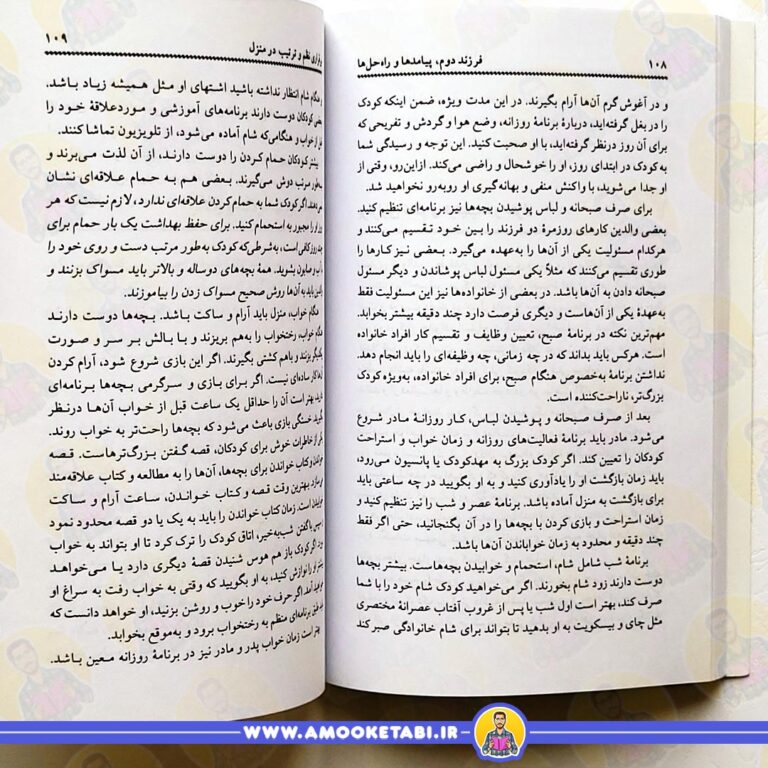 ۱۰۸
فرزند دوم، پیامدها و راه‌حل‌ها
و در آغوش گرم آن‌ها آرام بگیرند. در این مدت ویژه، ضمن اینکه کودک
را در بغل گرفته‌اید، دربارهٔ برنامهٔ روزانه، وضع هوا و گردش و تفریحی که
برای آن روز درنظر گرفته‌اید، با او صحبت کنید. این توجه و رسیدگی شما
به کودک در ابتدای روز، او را خوشحال و راضی می‌کند. ازاین‌رو، وقتی از
او جدا می‌شوید، با واکنش منفی و بهانه‌گیری او روبه‌رو نخواهید شد.
برای صرف صبحانه و لباس پوشیدن بچه‌ها نیز برنامه‌ای تنظیم کنید.
بعضی والدین کارهای روزمرهٔ دو فرزند را بین خود تقسیم می‌کنند و
هرکدام مسئولیت یکی از آن‌ها را به‌عهده می‌گیرد. بعضی نیز کارها را
طوری تقسیم می‌کنند که مثلاً یکی مسئول لباس پوشاندن و دیگر مسئول
صبحانه دادن به آن‌ها باشد. در بعضی از خانواده‌ها نیز این مسئولیت فقط
به‌عهدهٔ یکی از آن‌هاست و دیگری فرصت دارد چند دقیقه بیشتر بخوابد.
مهم‌ترین نکته در برنامهٔ صبح، تعیین وظایف و تقسیم کار افراد خانواده
است. هرکس باید بداند که در چه زمانی، چه وظیفه‌ای را باید انجام دهد.
نداشتن برنامه به‌خصوص هنگام صبح، برای افراد خانواده، به‌ویژه کودک
بزرگ‌تر، ناراحت‌کننده است.
بعد از صرف صبحانه و پوشیدن لباس، کار روزانهٔ مادر شروع
می‌شود. مادر باید برنامهٔ فعالیت‌های روزانه و زمان خواب و استراحت
کودکان را تعیین کند. اگر کودک بزرگ به مهدکودک یا پانسیون می‌رود،
باید زمان بازگشت او را یادآوری کنید و به او بگویید در چه ساعتی باید
برای بازگشت به منزل آماده باشد. برنامهٔ عصر و شب را نیز تنظیم کنید و
زمان استراحت و بازی کردن با بچه‌ها را در آن بگنجانید، حتی اگر فقط
چند دقیقه و محدود به زمان خواباندن آن‌ها باشد.
برنامهٔ شب شامل شام، استحمام و خوابیدن بچه‌هاست. بیشتر بچه‌ها
دوست دارند زود شام بخورند. اگر می‌خواهید کودک شام خود را با شما
صرف کند، بهتر است اول شب یا پس از غروب آفتاب عصرانهٔ مختصری
مثل چای و بیسکویت به او بدهید تا بتواند برای شام خانوادگی صبر کند
نظم و ترتیب در منزل
۱۰۹
شام انتظار نداشته باشید اشتهای او مثل همیشه زیاد باشد.
کودکان دوست دارند برنامه‌های آموزشی و موردعلاقهٔ خود را
از خواب و هنگامی‌که شام آماده می‌شود، از تلویزیون تماشا کنند.
بیشتر کودکان حمام کردن را دوست دارند، از آن لذت می‌برند و
مرتب دوش می‌گیرند. بعضی هم به حمام علاقه‌ای نشان
اگر کودک شما به حمام کردن علاقه‌ای ندارد، لازم نیست که هر
او را مجبور به استحمام کنید. برای حفظ بهداشت یک بار حمام برای
روز کافی است، به‌شرطی‌که کودک به‌طور مرتب دست و روی خود را
آب و صابون بشوید. همهٔ بچه‌های دوساله و بالاتر باید مسواک بزنند و
باید به آن‌ها روش صحیح مسواک زدن را بیاموزند.
خواب، منزل باید آرام و ساکت باشد. بچه‌ها دوست دارند
خواب، رختخواب را به‌هم بریزند و با بالش بر سر و صورت
بزنند و باهم کشتی بگیرند. اگر این بازی شروع شود، آرام کردن
کار ساده‌ای نیست. اگر برای بازی و سرگرمی بچه‌ها برنامه‌ای
بهتر است آن را حداقل یک ساعت قبل از خواب آن‌ها درنظر
خستگی بازی باعث می‌شود که بچه‌ها راحت‌تر به خواب روند.
از خاطرات خوش برای کودکان، قصه گفتن بزرگ‌ترهاست. قصه
و کتاب خواندن برای بچه‌ها، آن‌ها را به مطالعه و کتاب علاقه‌مند
بهترین وقت قصه و کتاب خواندن، ساعت آرام و ساکت
است. زمان کتاب خواندن را باید به یک یا دو قصه محدود نمود
سپس با گفتن شب‌به‌خیر، اتاق کودک را ترک کرد تا او بتواند به خواب
اگر کودک باز هم هوس شنیدن قصهٔ دیگری دارد یا می‌خواهد
او را نوازش کنید، به او بگویید که وقتی به خواب رفت به سراغ او
آمد. اگر حرف خود را خوب و روشن بزنید، او خواهد دانست که
طبق برنامه‌ای منظم به رختخواب برود و به‌موقع بخوابد.
بهتر است زمان خواب پدر و مادر نیز در برنامهٔ روزانه معین باشد.
WWW.AMOOKETABI.IR